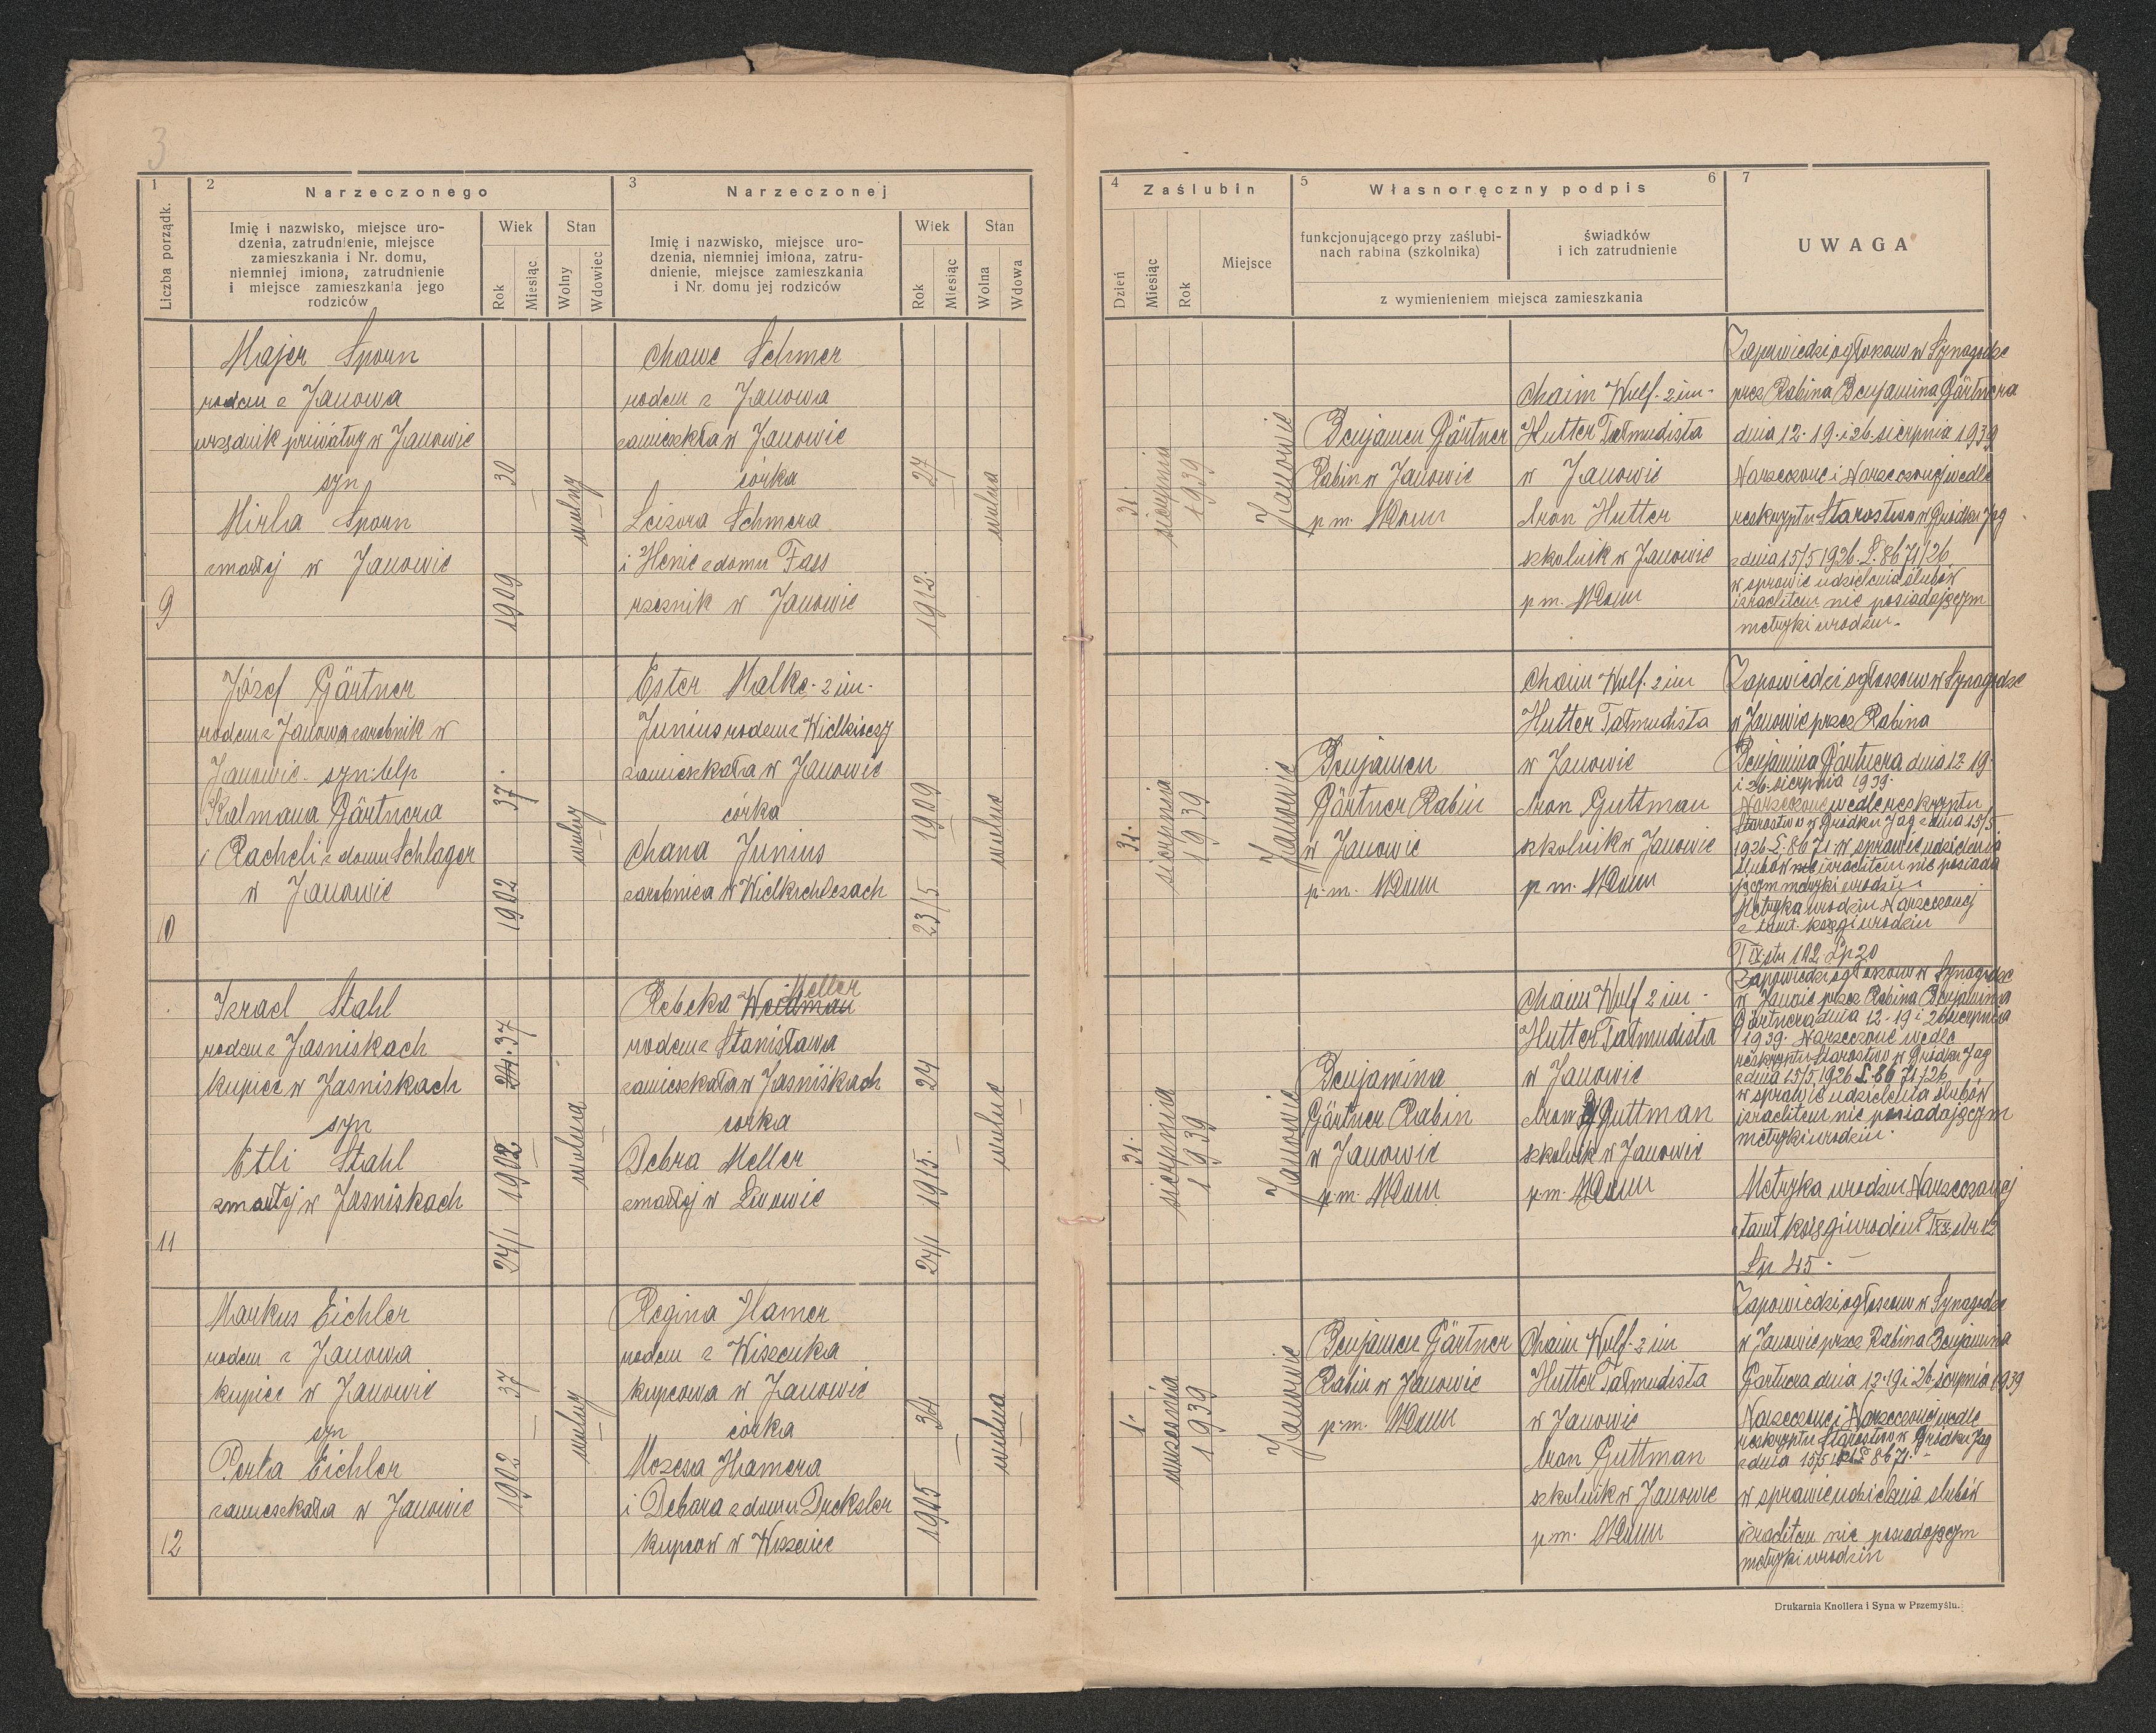 3
1
Liczba porządk.
2
Narzeczonego
Imię i nazwisko, miejsce uro-
dzenia, zatrudnienie, miejsce
zamieszkania i Nr. domu,
niemniej imiona, zatrudnienie
i miejsce zamieszkania jego
rodziców
Wiek
Rok
Miesiąc
Stan
Wolny
Wdowiec
3
Narzeczonej
Imię i nazwisko, miejsce uro-
dzenia, niemniej imiona, zatru-
dnienie, miejsce zamieszkania
i Nr. domu jej rodziców
Wiek
Rok
Miesiąc
Stan
Wolna
Wdowa
4
Zaślubin
Dzień
Miesiąc
Rok
Miejsce
5
Własnoręczny podpis
6
funkcjonującego przy zaślubi-
nach rabina (szkolnika)
świadków
i ich zatrudnienie
z wymienieniem miejsca zamieszkania
7
UWAGA
9
Majer Sporn
rodem z Janowa
urzędnik priwatny w Janowie
syn
Mirla Sporn
zmarłej w Janowie
30
1909
wolny
Chawe Schmer
rodem z Janowa
zamieszkła w Janowie
córka
Leizora Schmera
i Henie z domu Fass
rzeznik w Janowie
27
1912.
wolna
31.
sierpnia
1939
Janowie
Benjamen Gärtner
Rabin w Janowie
p.m.
Chaim Wulf. 2 im.
Hutter Tałmudista
w Janowie
Aron Hutter
szkolnik w Janowie
p m.
Zapowiedzi ogłoszono w Synagodze
prez Rabina Benjamina Gärtnera
dnia 12. 19. i 26. sierpnia 1939
Narzeczone i Narzeczonej wedle
reskryptu Starostwo w Gródku Jag
z dnia 15/5 1926. L. 8671/26
w sprawie udzielenia ślubów
izraelitem nie posiadającym
metryki urodzin.
10
Józef Gärtner
rodem z Janowa zarobnik w
Janowie syn: ślp
Kalmana Gärtnera
i Racheli z domu Schlager
w Janowie
37.
1902
wolny
Ester Malke. 2 im.
Junius rodem z
zamieszkała w Janowie
córka
Chana Junius
zarobnica w
1909
23/5
wolna
31.
sierpnia
1939
Janowie
Benjamen
Gärtner Rabin
w Janowie
p.m.
Chaim Wulf. 2 im
Hutter Tałmudista
w Janowie
Aron Guttman
szkolnik w Janowie
p m.
Zapowiedzi ogłoszono w Synagodze
w Janowie przez Rabina
Benjamina Gärtnera dnia 12. 19.
i 26. sierpnia 1939.
Narzeczone wedle reskryptu
Starostwo w Gródku Jag z dnia 15/5
1926 L. 8671 w sprawie udzielenia
ślubów izraelitem nie posiada
jącym metryki urodzin
Metryka urodzin Narzeczonej
z tamt. księgi urodzin
T IX. str 102 Lp 20
11
Izrael Stahl
rodem z Jasniskach
kupiec w Jasniskach
syn
Etli Stahl
zmarłej w Jasniskach
37
24/1 1902
wolna
Rebeka Weidman Meller
rodem z Stanisława
zamieszkała w Jasniskach
corka
Debra Meller
zmarłej w Lwowie
24
24/1 1915.
wolna
31.
sierpnia
1939
Janowie
Benjamina
Gärtner Rabin
w Janowie
p.m.
Chaim Wulf 2 im.
Hutter Tałmudista
w Janowie
Aron Guttman
szkolnik w Janowie
p.m.
Zapowiedzi ogłoszono w Synagodze
w Janowie przez Rabina Benjamina
Gärtnera dnia 12. 19 i 26 sierpnia
1939. Narzeczone wedle
reskryptu Starostwo w Gródku Jag
z dnia 15/5 1926 L. 8671/26
w sprawie udzielenia ślubów
izraelitem nie posiadającym
metryki urodzin.
Metryka urodzin Narzeczonej
z tamt księgi urodzin T IX. str. 12
Lp 45.
12
Markus Eichler
rodem z Janowa
kupiec w Janowie
syn
Perla Eichler
zamieszkała w Janowie
37
1902
wolny
Regina Hamer
rodem z Wiszenka
kupcowa w Janowie
córka
Mozesa Hamera
i Debara z domu Dreksler
kupców w Wiszence
34
1905
wolna
1.
wrzesnia
1939
Janowie
Benjamen Gärtner
Rabin w Janowie
p.m.
Chaim Wulf. 2 im
Hutter Tałmudista
w Janowie
Aron Guttman
szkolnik w Janowie
p.m.
Zapowiedzi ogłoszono w Synagodze
w Janowie prze Rabina Benjamina
Gärtnera dnia 12. 19 i 26. sierpnia 1939
Narzeczone i Narzeczonej wedle
reskryptu Starostwo w Gródku Jag
z dnia 15/5 L 8671.
w sprawie udzielenia ślubów
izraelitem nie posiadającym
metryki urodzin
Drukarnia Knollera i Syna w Przemyślu.